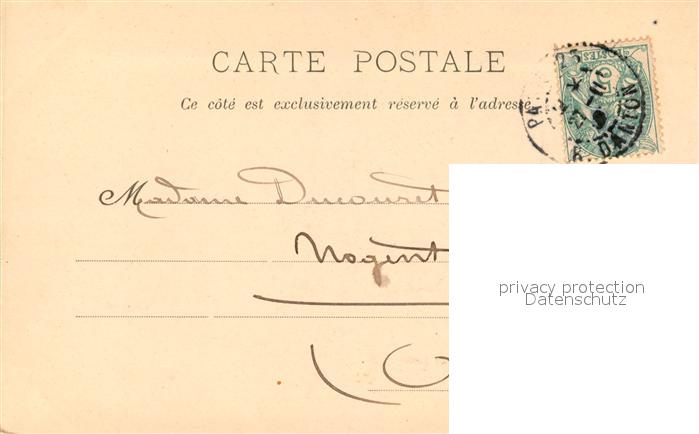 CARTE POSTALE
Ce côté est exclusivement réservé à l'adresse
PA
R. DANTON
5
Madame Ducouret
Nogent
privacy protection
Datenschutz